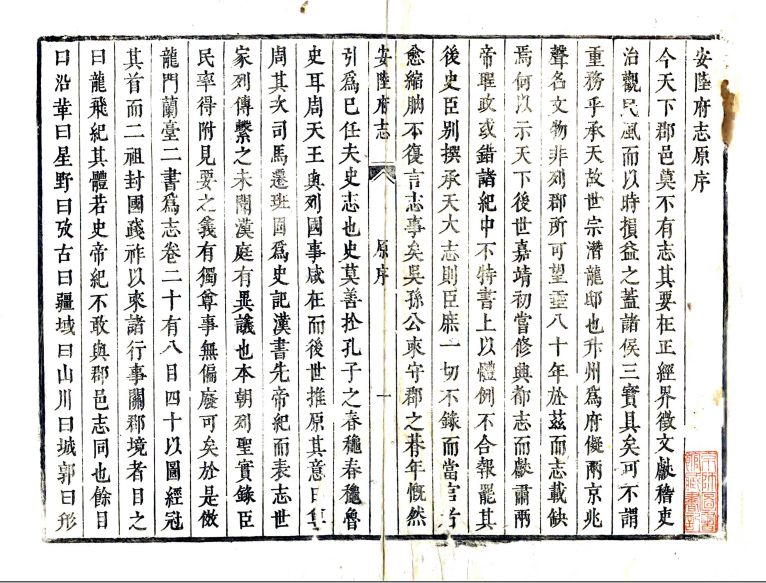 安陸府志原序
今天下郡邑莫不有志其要在正經界徵文獻稽吏
治觀民風而以時損益之蓋諸侯三寳具矣可不謂
重務乎承天故世宗潛龍邸也升州爲府儗兩京兆
聲名文物非列郡所可望垂八十年於茲而志載缺
焉何以示天下後世嘉靖初嘗修典都志而獻肅兩
帝聖政或錯諸紀中不特書上以體例不合報罷其
後史臣别撰承天大志則臣庶一切不錄而當官者
愈縮朒不復言志事矣吳孫公來守郡之朞年慨然
安陸府志
原序
一
引爲已任夫史志也史莫善於孔子之春穐春穐魯
史耳周天王與列國事咸在而後世推原其意曰隻
周其次司馬遷班固爲史記漢書先帝紀而表志世
家列傳繫之未聞漢庭有異議也本朝列聖實錄臣
民率得附見要之義有獨尊事無偏廢可矣於是倣
龍門蘭臺二書爲志卷二十有八目四十以圖經冠
其首而二祖封國踐祚以來諸行事關郡境者目之
曰龍飛紀其體若史帝紀不敢與郡邑志同也餘目
曰沿革曰星野曰攷古曰疆域曰山川曰城郭曰形